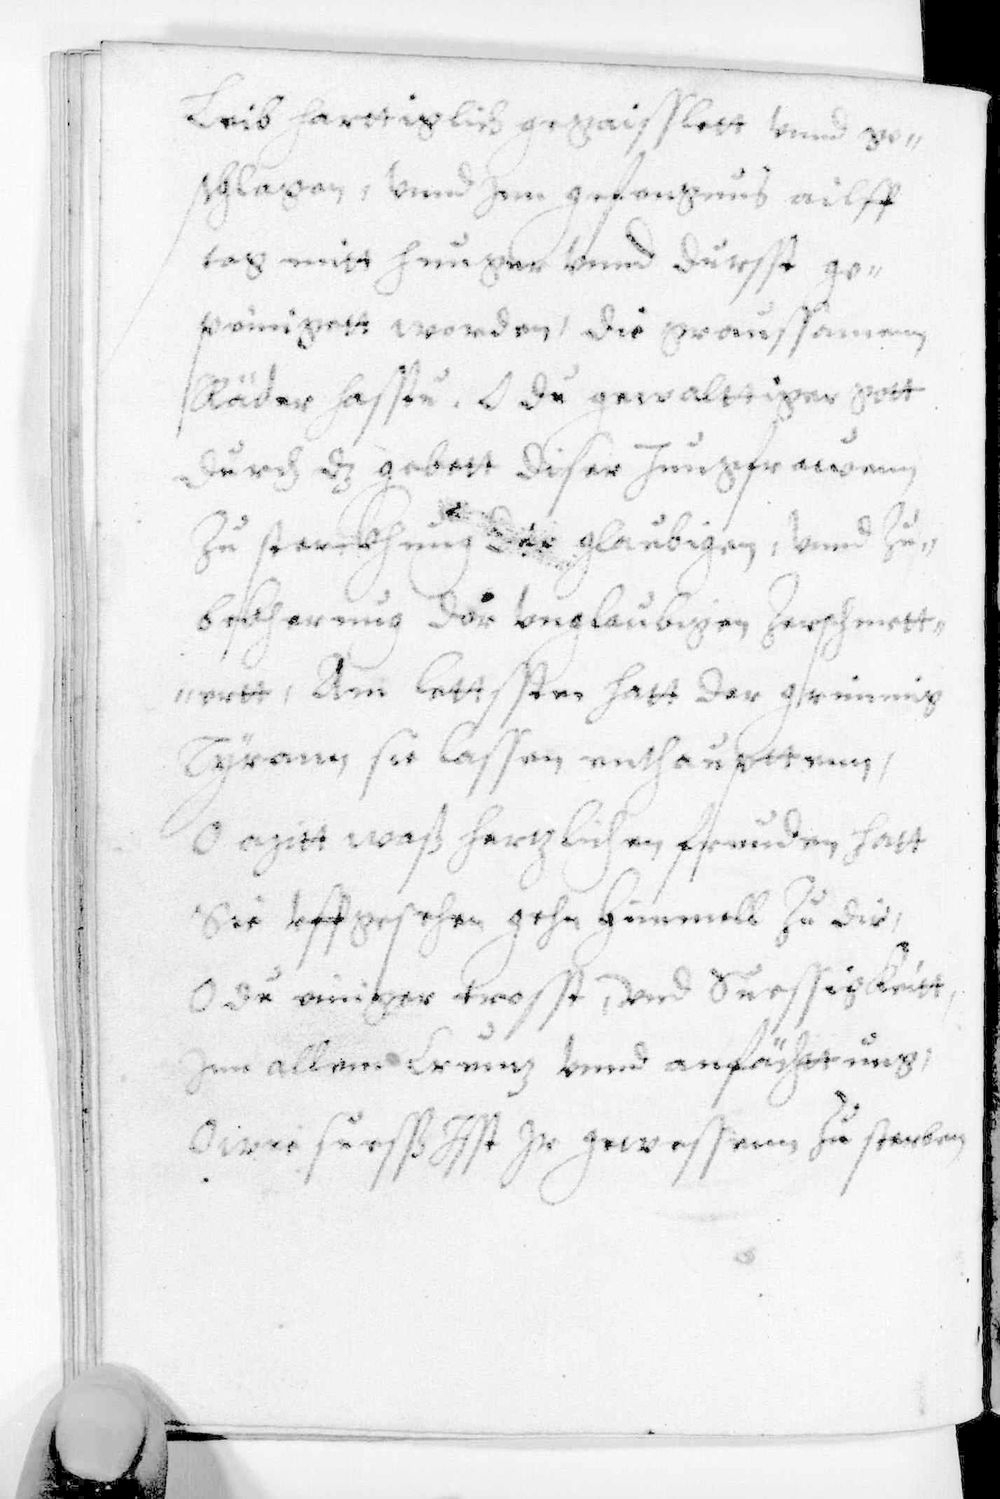 Leib harttiglich gegaisslett vnnd ge-
schlagen, vnnd Jnn gefengnus ailff
tag mitt hunger vnnd dursst ge-
peinigett worden, die graussamen
Räder hasstu. O du gewalttiger gott
durch dz gebett diser Jungfrawenn
Zu sterckhung der glaubigen, vnnd Zu-
bekherung der vnglaubigen Zerschmett-
ertt, Am lettssten hatt der grimmig
Tÿrann sie lassen enthaupttenn,
O gitt waß hertzlichen freuden hatt
Sie vffgesehen gehn Himmell Zu dir,
O du ainiger trosst, vnd Suessigkeitt,
Jnn allem Creutz vnnd anfächttung,
O wie suessß Jsst Jr gewessenn Zu sterben